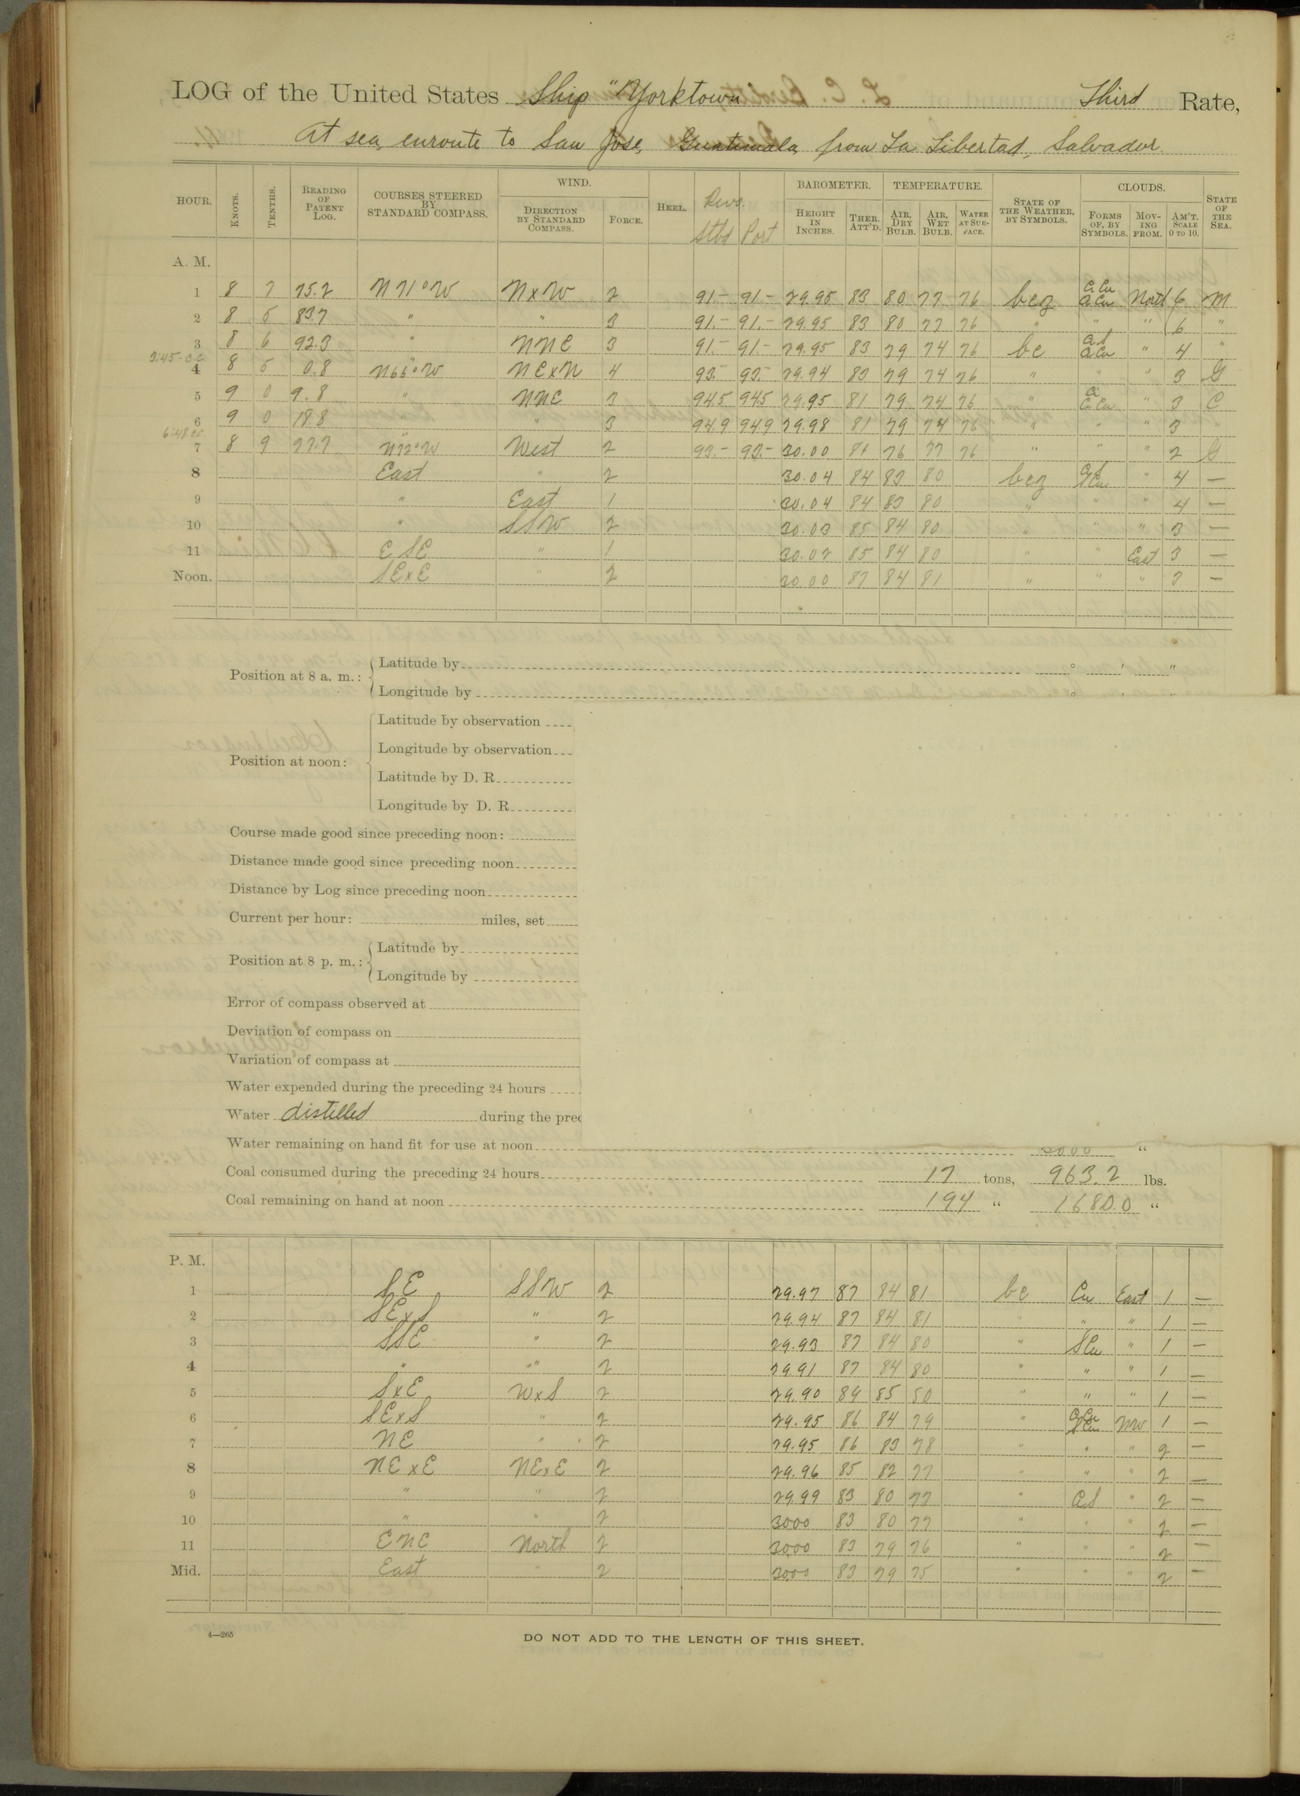 LOG of the United States Ship "Yorktown Third Rate,
At sea enroute to San Jose, Guatemala, from La Libertad, Salvador.
HOUR. KNOTS. TENTHS. READING OF PATENT LOG. COURSES STEERED BY STANDARD COMPASS. WIND. DIRECTION BY STANDARD COMPASS. FORCE. HEEL. Revs. Stbd Port BAROMETER. HEIGHT IN INCHES. THER. ATT'D. TEMPERATURE. AIR, DRY BULB. AIR, WET BULB. WATER AT SURFACE. STATE OF THE WEATHER, BY SYMBOLS. CLOUDS. FORMS OF, BY SYMBOLS. MOVING FROM. AM'T. SCALE 0 TO 10. STATE OF THE SEA.
A. M.
1 8 7 75.2 N71°W NxW 2 91.- 91.- 29.95 83 80 77 76 bcz North 6 M
2 8 5 83.7 " " 3 91.- 91.- 29.95 83 80 77 76 " " " 6 "
3 8 6 92.3 " NNE 3 91.- 91.- 29.95 83 79 74 76 bc " 4 "
2:45-c.c.
4 8 5 0.8 N66°W NExN 4 93.- 93.- 29.94 83 79 74 76 " " " 3 G
5 9 0 9.8 " NNE 3 94.5 94.5 29.95 81 79 74 76 " " 3 C
6 9 0 18.8 " " 3 94.9 94.9 29.98 81 79 74 76 " " " 3
7 8 9 27.7 N72°W West 2 93.- 93.- 30.00 81 76 77 76 " " " 2 G
8 East " 2 30.04 84 83 80 bcz " 4 —
9 " East 1 30.04 84 83 80 " " " 4 —
10 " SSW 2 30.03 85 84 80 " " " 3 —
11 ESE " 1 30.02 85 84 80 " " East 3 —
Noon. SExE " 2 30.00 87 84 81 " " " 3 —
Position at 8 a. m.: Latitude by ° ' "
Longitude by
Position at noon: Latitude by observation
Longitude by observation
Latitude by D. R.
Longitude by D. R.
Course made good since preceding noon:
Distance made good since preceding noon
Distance by Log since preceding noon
Current per hour: miles, set
Position at 8 p. m.: Latitude by
Longitude by
Error of compass observed at
Deviation of compass on
Variation of compass at
Water expended during the preceding 24 hours
Water distilled during the prec
Water remaining on hand fit for use at noon "
Coal consumed during the preceding 24 hours 17 tons, 963.2 lbs.
Coal remaining on hand at noon 194 " 1680.0 "
P. M.
1 SE SSW 2 29.97 87 84 81 bc Cu East 1 —
2 SExS " 2 29.94 87 84 81 " " " 1 —
3 SSE " 2 29.93 87 84 80 " SCu " 1 —
4 " " 2 29.91 87 84 80 " " " 1 —
5 SxE WxS 2 29.90 89 85 80 " " " 1 —
6 SExS " 2 29.95 86 84 79 " NW 1 —
7 NE " 2 29.95 86 83 78 " " " 2 —
8 NExE NExE 2 29.96 85 82 77 " " " 2 —
9 " " 2 29.99 83 80 77 " " 2 —
10 " " 2 30.00 83 80 77 " " " 2 —
11 ENE North 2 30.00 83 79 76 " " " 2 —
Mid. East " 2 30.00 83 79 75 " " " 2 —
4—265
DO NOT ADD TO THE LENGTH OF THIS SHEET.